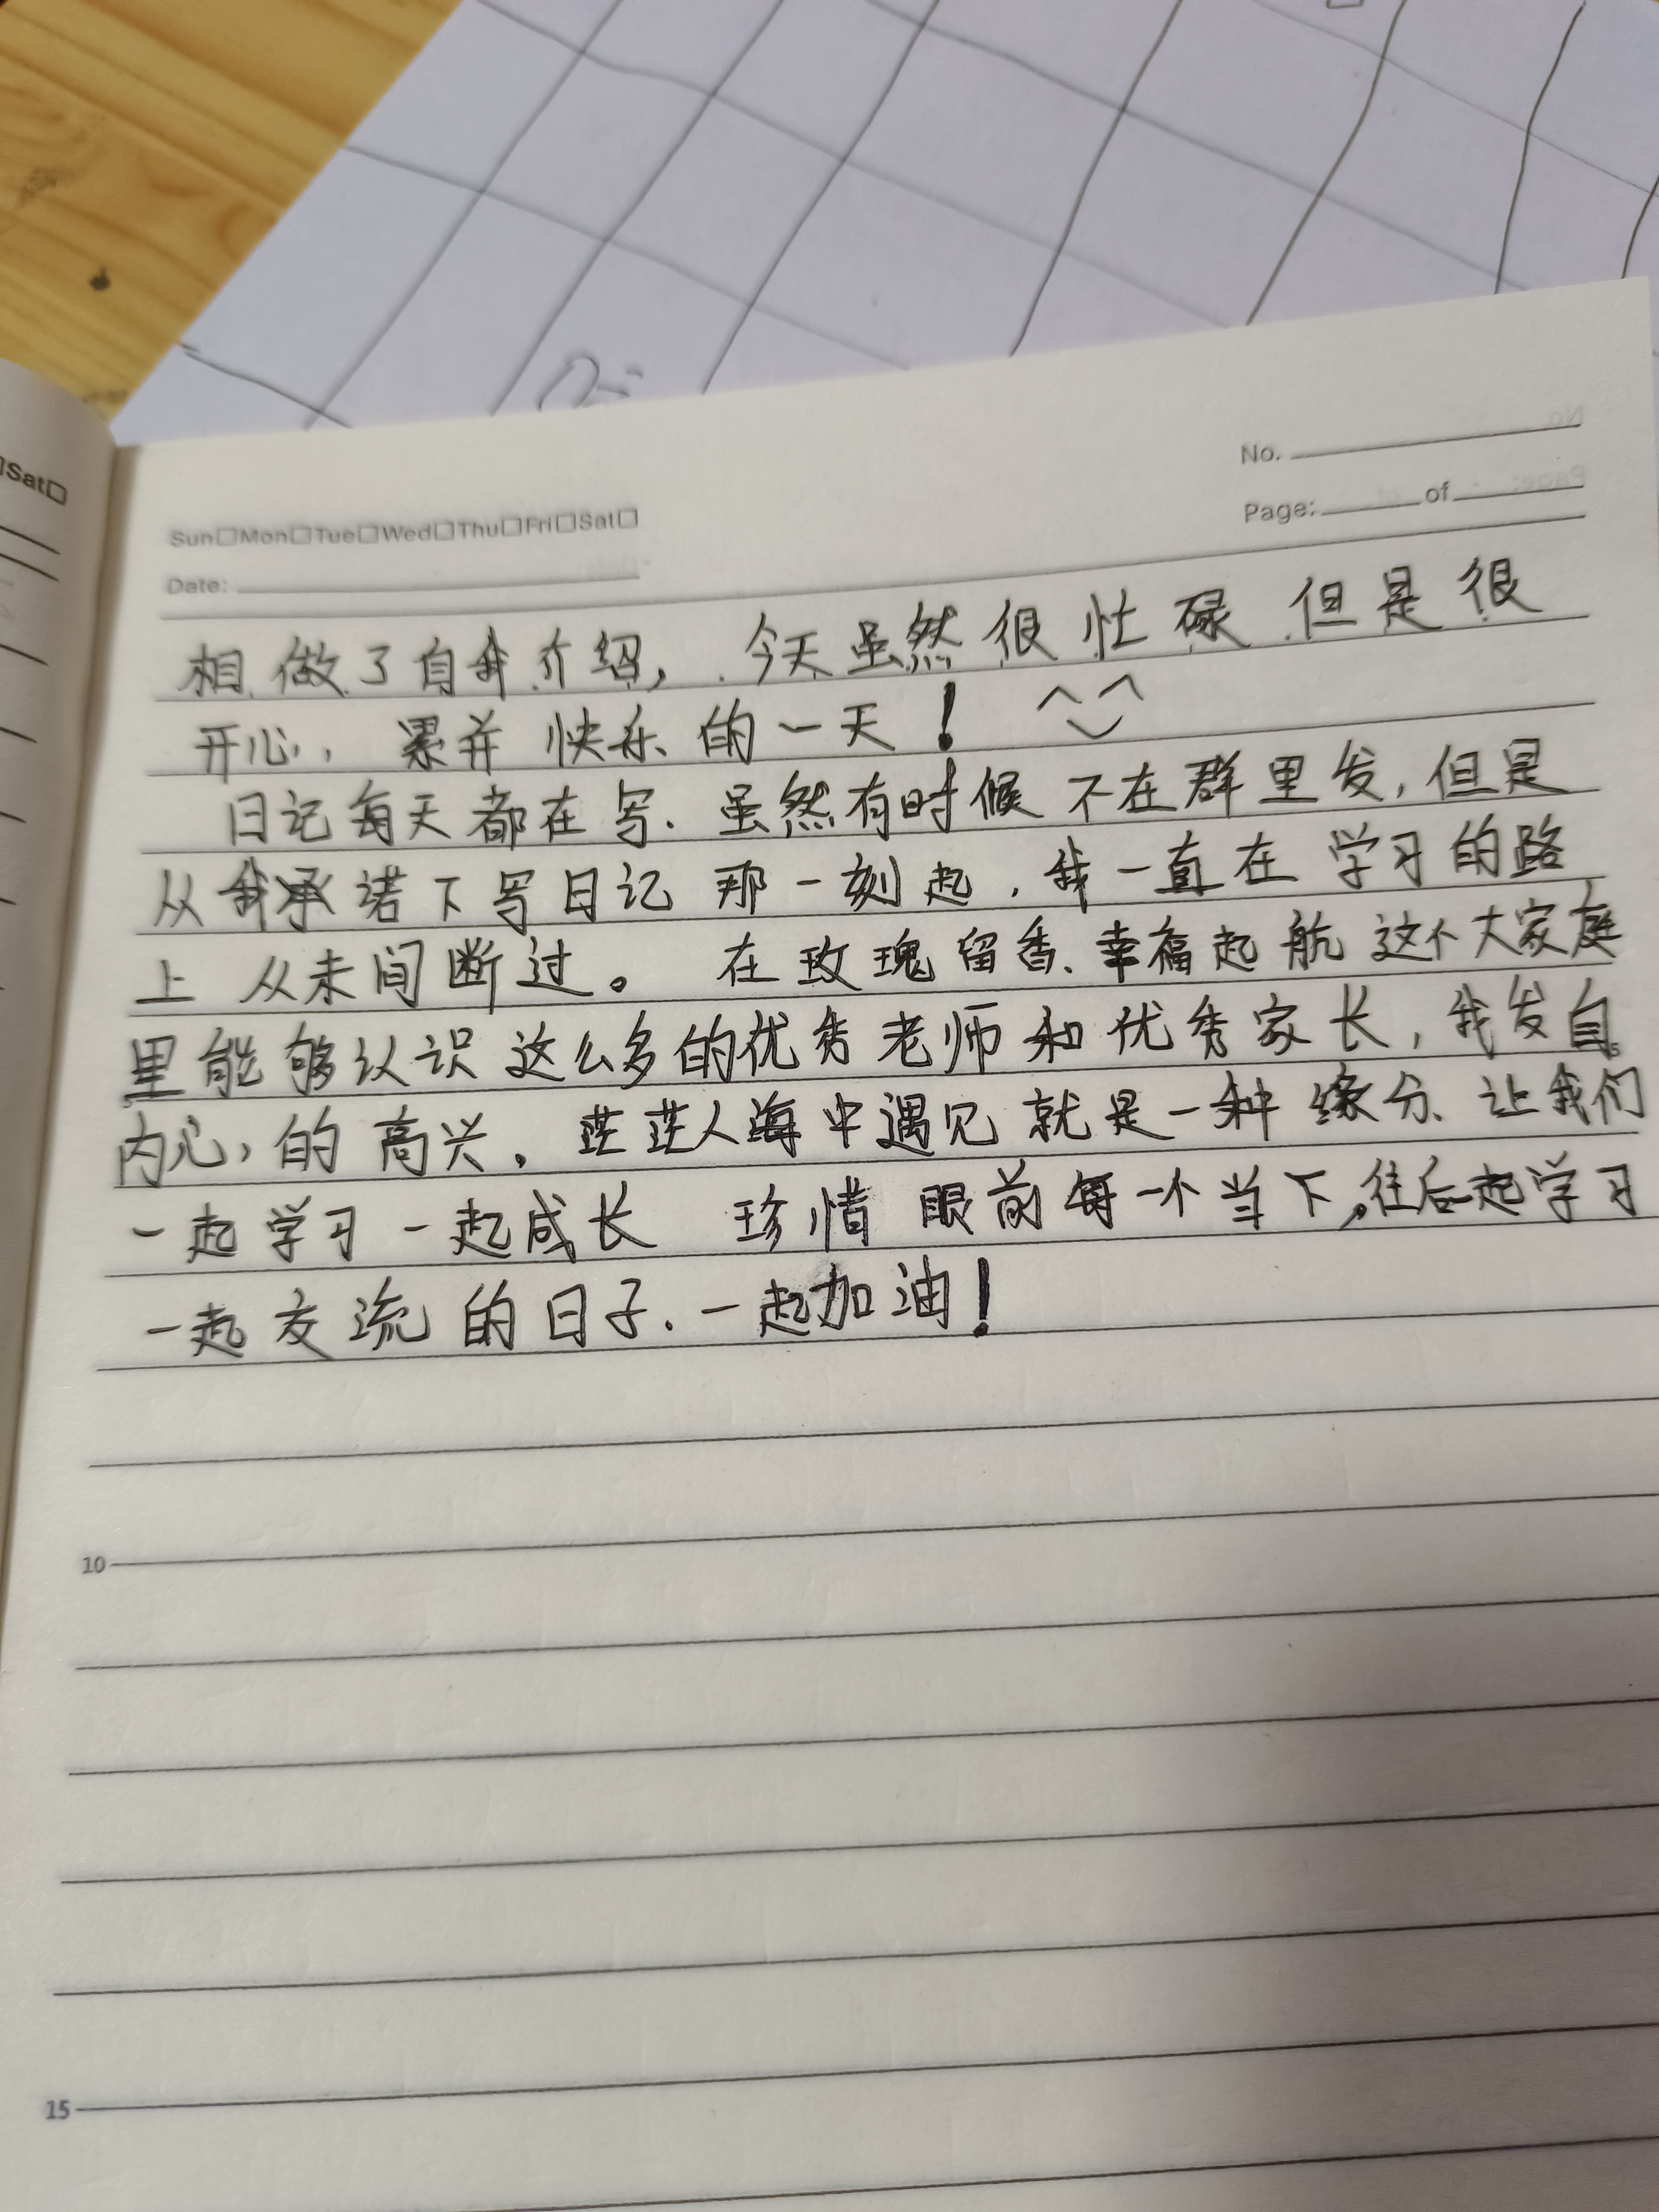 Sat□
No.
Page: of
Sun□Mon□Tue□Wed□Thu□Fri□Sat□
Date:
相做了自我介绍，今天虽然很忙碌但是很
开心，累并快乐的一天！
日记每天都在写.虽然有时候不在群里发,但是
从我承诺下写日记那一刻起.我一直在学习的路
上从未间断过。在玫瑰留香、幸福起航这个大家庭
里能够认识这么多的优秀老师和优秀家长,我发自
内心,的高兴.茫茫人海中遇见就是一种缘分、让我们
一起学习一起成长 珍惜眼前每一个当下,往后一起学习
一起交流的日子.一起加油!
10
15